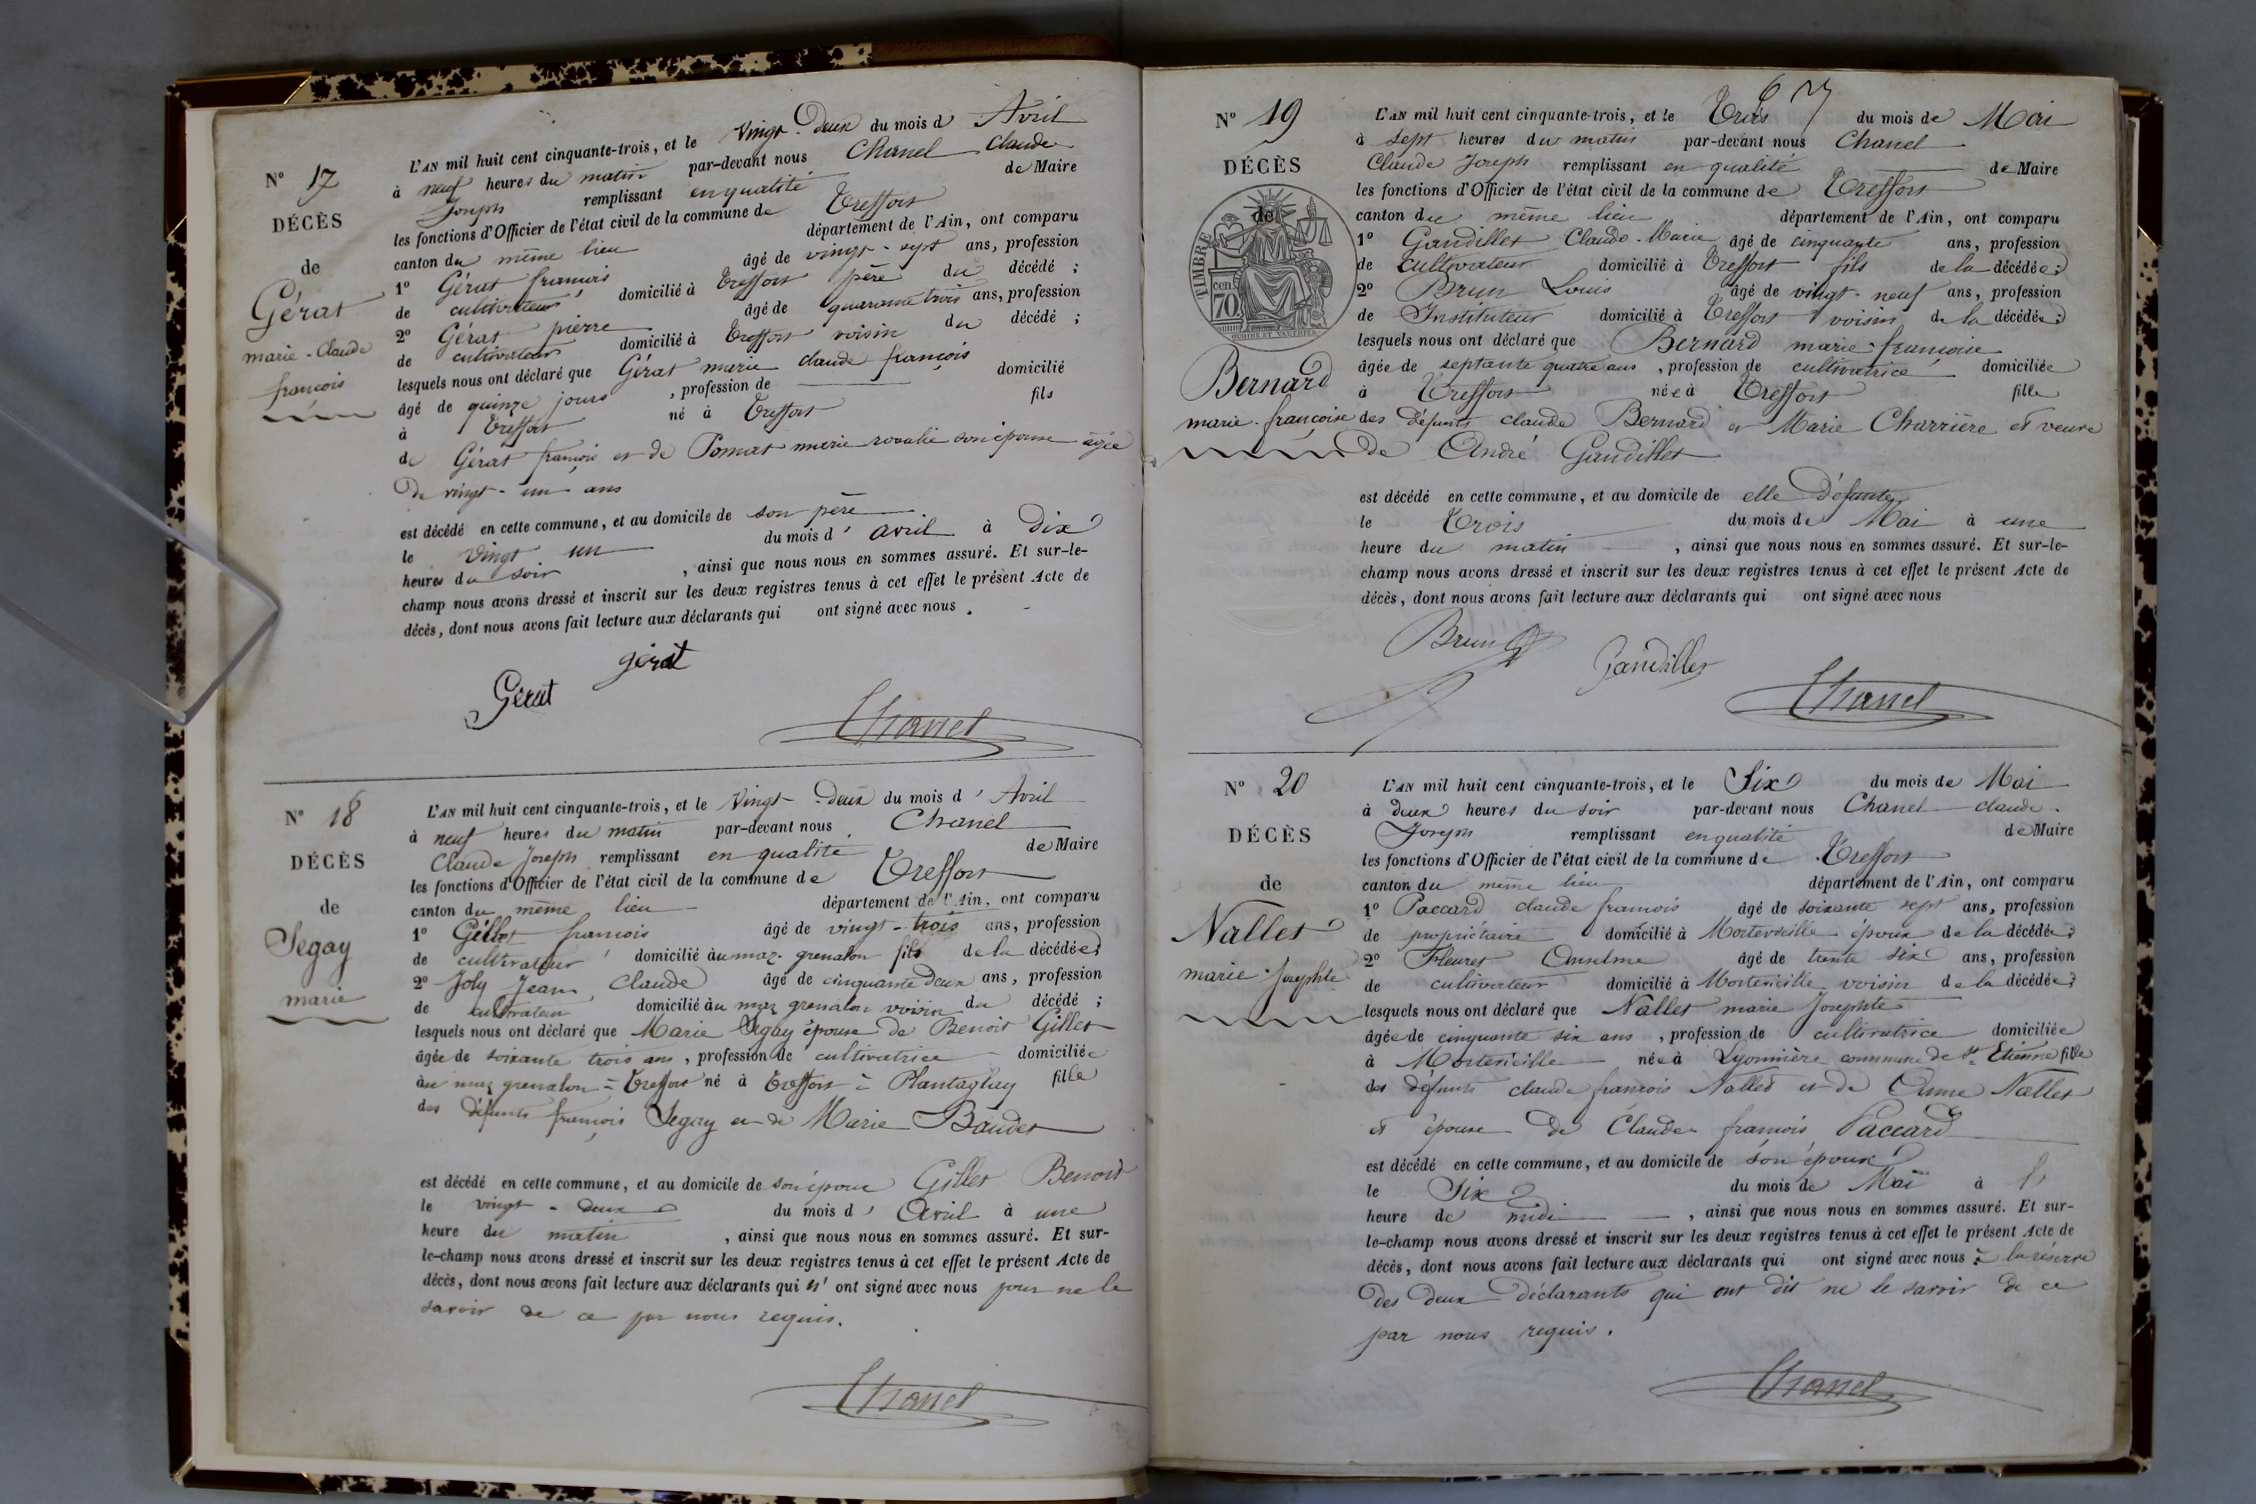 N° 17
DÉCÈS
de
Gérat
marie-Claude
françois
L'AN mil huit cent cinquante-trois, et le Vingt-Deux du mois d Avril
à neuf heures du matin par-devant nous Chanel Claude
Joseph remplissant en qualité de Maire
les fonctions d'Officier de l'état civil de la commune de Treffort
canton du même lieu département de l'Ain, ont comparu
1° Gérat francois âgé de vingt-sept ans, profession
de cultivateur domicilié à Treffort père du décédé ;
2° Gérat pierre âgé de quarante trois ans, profession
de cultivateur domicilié à Treffort voisin du décédé ;
lesquels nous ont déclaré que Gérat marie claude françois
âgé de quinze jours , profession de domicilié
à Treffort né à Treffort fils
de Gérat françois et de Pomat marie rosalie son épouse âgée
de vingt-un ans
est décédé en cette commune, et au domicile de son père
le Vingt un du mois d' avril à Dix
heures du soir , ainsi que nous nous en sommes assuré. Et sur-le-
champ nous avons dressé et inscrit sur les deux registres tenus à cet effet le présent Acte de
décès, dont nous avons fait lecture aux déclarants qui ont signé avec nous .
gérat
Gérat
Chanel
N° 18
DÉCÈS
de
Segay
marie
L'AN mil huit cent cinquante-trois, et le Vingt-Deux du mois d' Avril
à neuf heures du matin par-devant nous Chanel
Claude Joseph remplissant en qualité de Maire
les fonctions d'Officier de l'état civil de la commune de Treffort
canton du même lieu département de l'Ain, ont comparu
1° Gillet francois âgé de vingt-trois ans, profession
de cultivateur domicilié au maz-grenalon fils de la décédée ;
2° Joly Jean Claude âgé de cinquante deux ans, profession
de cultivateur domicilié au maz grenalon voisin du décédé ;
lesquels nous ont déclaré que Marie Segay épouse de Benoit Gillet
âgée de soixante trois ans , profession de cultivatrice domiciliée
au maz grenalon = Treffort né à Treffort = Plantaglay fille
des défunts françois Segay et de Marie Baudet
est décédé en cette commune, et au domicile de son époux Gillet Benoit
le vingt-deux du mois d' Avril à une
heure du matin , ainsi que nous nous en sommes assuré. Et sur-
le-champ nous avons dressé et inscrit sur les deux registres tenus à cet effet le présent Acte de
décès, dont nous avons fait lecture aux déclarants qui n' ont signé avec nous pour ne le
savoir de ce par nous requis.
Chanel
67
N° 19
DÉCÈS
de
TIMBRE
70 cen
Bernard
marie-françoise
L'AN mil huit cent cinquante-trois, et le Trois du mois de Mai
à sept heures du matin par-devant nous Chanel
Claude Joseph remplissant en qualité de Maire
les fonctions d'Officier de l'état civil de la commune de Treffort
canton du même lieu département de l'Ain, ont comparu
1° Gandillet Claude-Marie âgé de cinquante ans, profession
de cultivateur domicilié à Treffort fils de la décédée ;
2° Brun Louis âgé de vingt-neuf ans, profession
de Instituteur domicilié à Treffort voisin de la décédée ;
lesquels nous ont déclaré que Bernard marie-françoise
âgée de septante quatre ans , profession de cultivatrice domiciliée
à Treffort née à Treffort fille
des défunts claude Bernard et Marie Charrière et veuve
de André Gandillet
est décédé en cette commune, et au domicile de elle défunte
le Trois du mois de Mai à une
heure du matin , ainsi que nous nous en sommes assuré. Et sur-le-
champ nous avons dressé et inscrit sur les deux registres tenus à cet effet le présent Acte de
décès, dont nous avons fait lecture aux déclarants qui ont signé avec nous
Brun
Gandillet
Chanel
N° 20
DÉCÈS
de
Nallet
marie-Josephte
L'AN mil huit cent cinquante-trois, et le Six du mois de Mai
à deux heures du soir par-devant nous Chanel claude-
Joseph remplissant en qualité de Maire
les fonctions d'Officier de l'état civil de la commune de Treffort
canton du même lieu département de l'Ain, ont comparu
1° Paccard claude francois âgé de soixante sept ans, profession
de propriétaire domicilié à Montevieille époux de la décédée ;
2° Fleuret Anselme âgé de trente six ans, profession
de cultivateur domicilié à Montevieille voisin de la décédée ;
lesquels nous ont déclaré que Nallet marie Josephte
âgée de cinquante six ans , profession de cultivatrice domiciliée
à Montevieille née à Lyonnière commune de St Etienne fille
des défunts claude francois Nallet et de Anne Nallet
et épouse de Claude francois Paccard
est décédé en cette commune, et au domicile de son époux
le Six du mois de Mai à l'
heure de midi , ainsi que nous nous en sommes assuré. Et sur-
le-champ nous avons dressé et inscrit sur les deux registres tenus à cet effet le présent Acte de
décès, dont nous avons fait lecture aux déclarants qui ont signé avec nous à la réserve
des deux déclarants qui ont dit ne le savoir de ce
par nous requis.
Chanel